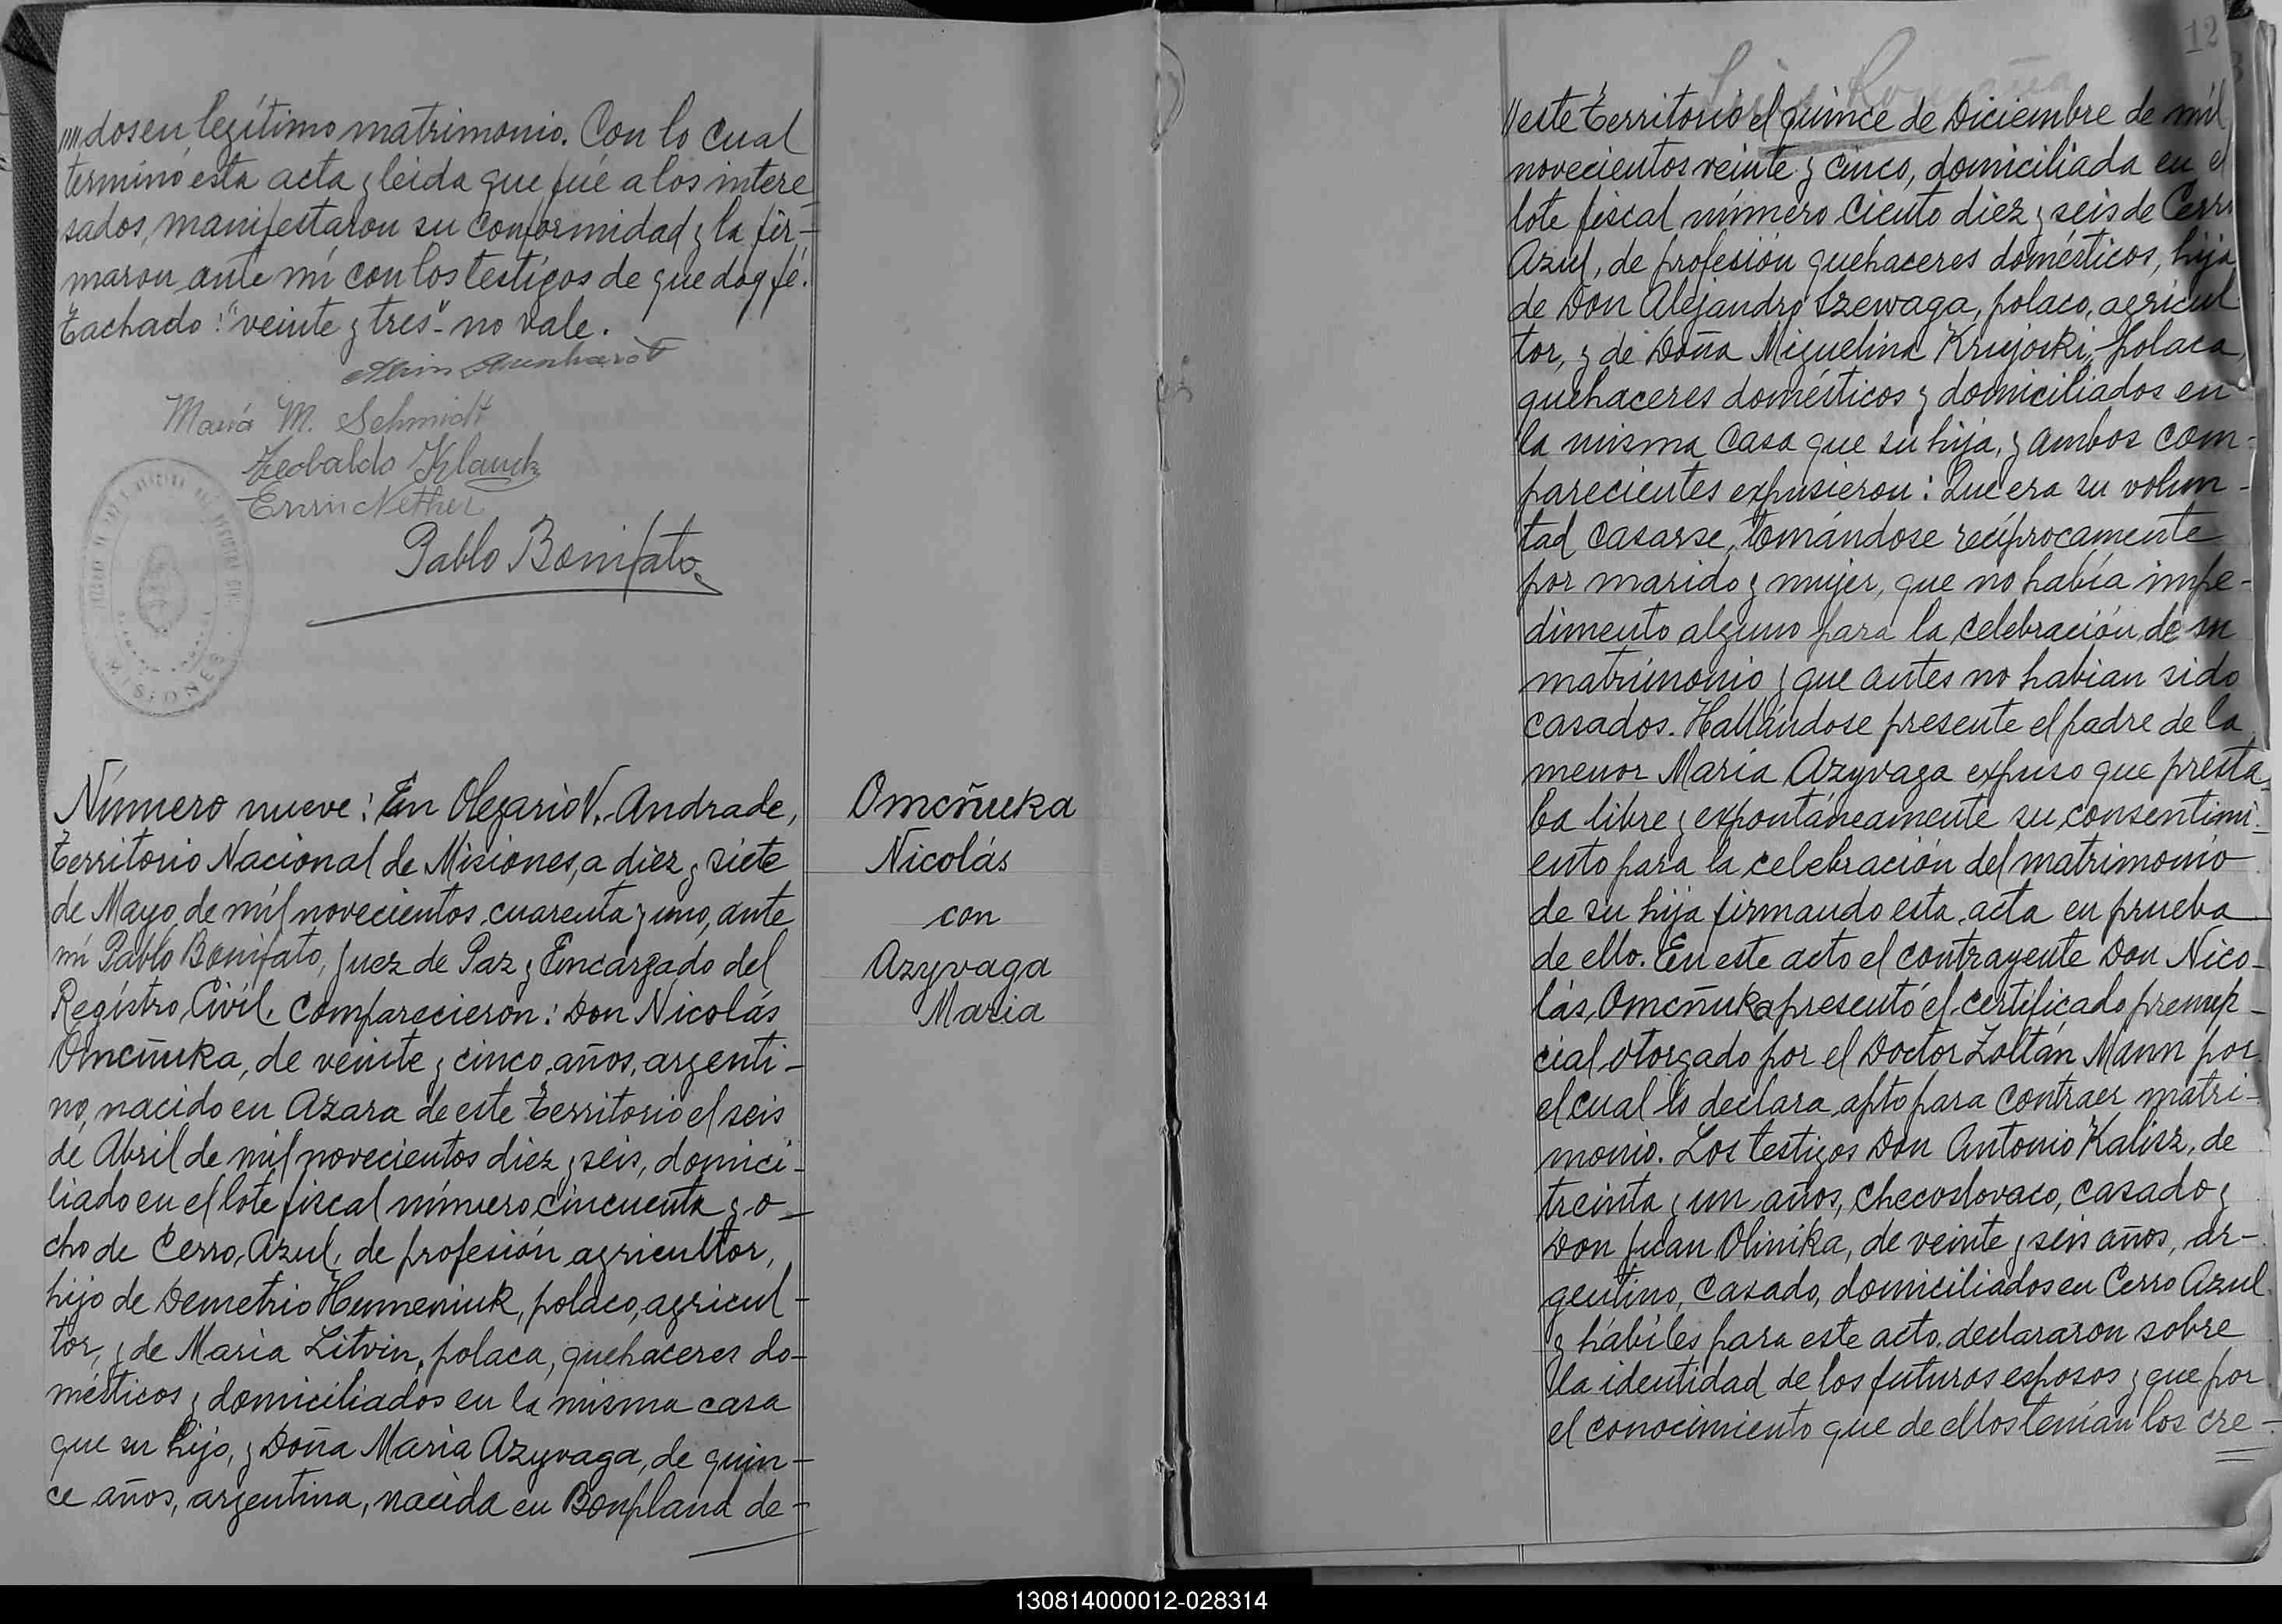 ""dos en legítimo matrimonio. Con lo cual
terminó esta acta y leida que fué a los intere-
sados, manifestaron su conformidad y la fir-
maron ante mí con los testigos de que doy fé.
Tachado: "veinte y tres" - no vale.
María M. Schmidt
Teobaldo Klauck
Erwin Nether
Pablo Bonifato
MISIONES
Número nueve: En Olegario V. Andrade,
Territorio Nacional de Misiones, a diez y siete
de Mayo de mil novecientos cuarenta y uno, ante
mí Pablo Bonifato, Juez de Paz y Encargado del
Registro Civil, Comparecieron: Don Nicolás
Omcñuka, de veinte y cinco años, argenti-
no, nacido en Azara de este Territorio el seis
de Abril de mil novecientos diez y seis, domici-
liado en el lote fiscal número cincuenta y o-
cho de Cerro Azul, de profesión agricultor,
hijo de Demetrio Humeniuk, polaco, agricul-
tor, y de Maria Litvin, polaca, quehaceres do-
mésticos y domiciliados en la misma casa
que su hijo, y Doña Maria Azyvaga, de quin-
ce años, argentina, nacida en Bonpland de-
Omcñuka
Nicolás
con
Azyvaga
Maria
12
"este Territorio el quince de Diciembre de mil
novecientos veinte y cinco, domiciliada en el
lote fiscal número ciento diez y seis de Cerro
Azul, de profesión quehaceres domésticos, hija
de Don Alejandro Szewaga, polaco, agricul
tor, y de Doña Miguelina polaca,
quehaceres domésticos y domiciliados en
la misma casa que su hija, y ambos com-
parecientes expusieron: Que era su volun-
tad casarse, tomándose recíprocamente
por marido y mujer, que no había impe-
dimento alguno para la celebración de su
matrimonio y que antes no habian sido
casados. Hallándose presente el padre de la
menor Maria Azyvaga expuso que presta-
ba libre y expontáneamente su consentimi-
ento para la celebración del matrimonio
de su hija firmando esta acta en prueba
de ello. En este acto el contrayente Don Nico-
lás Omcñuka presentó el certificado prenup-
cial otorgado por el Doctor Zoltán Mann por
el cual lo declara apto para contraer matri-
monio. Los testigos Don Antonio Kalisz, de
treinta y un años, checoslovaco, casado y
Don Juan Olinika, de veinte y seis años, ar-
gentino, casado, domiciliados en Cerro Azul
y hábiles para este acto, declararon sobre
la identidad de los futuros esposos y que por
el conocimiento que de ellos tenían los cre-
130814000012-028314